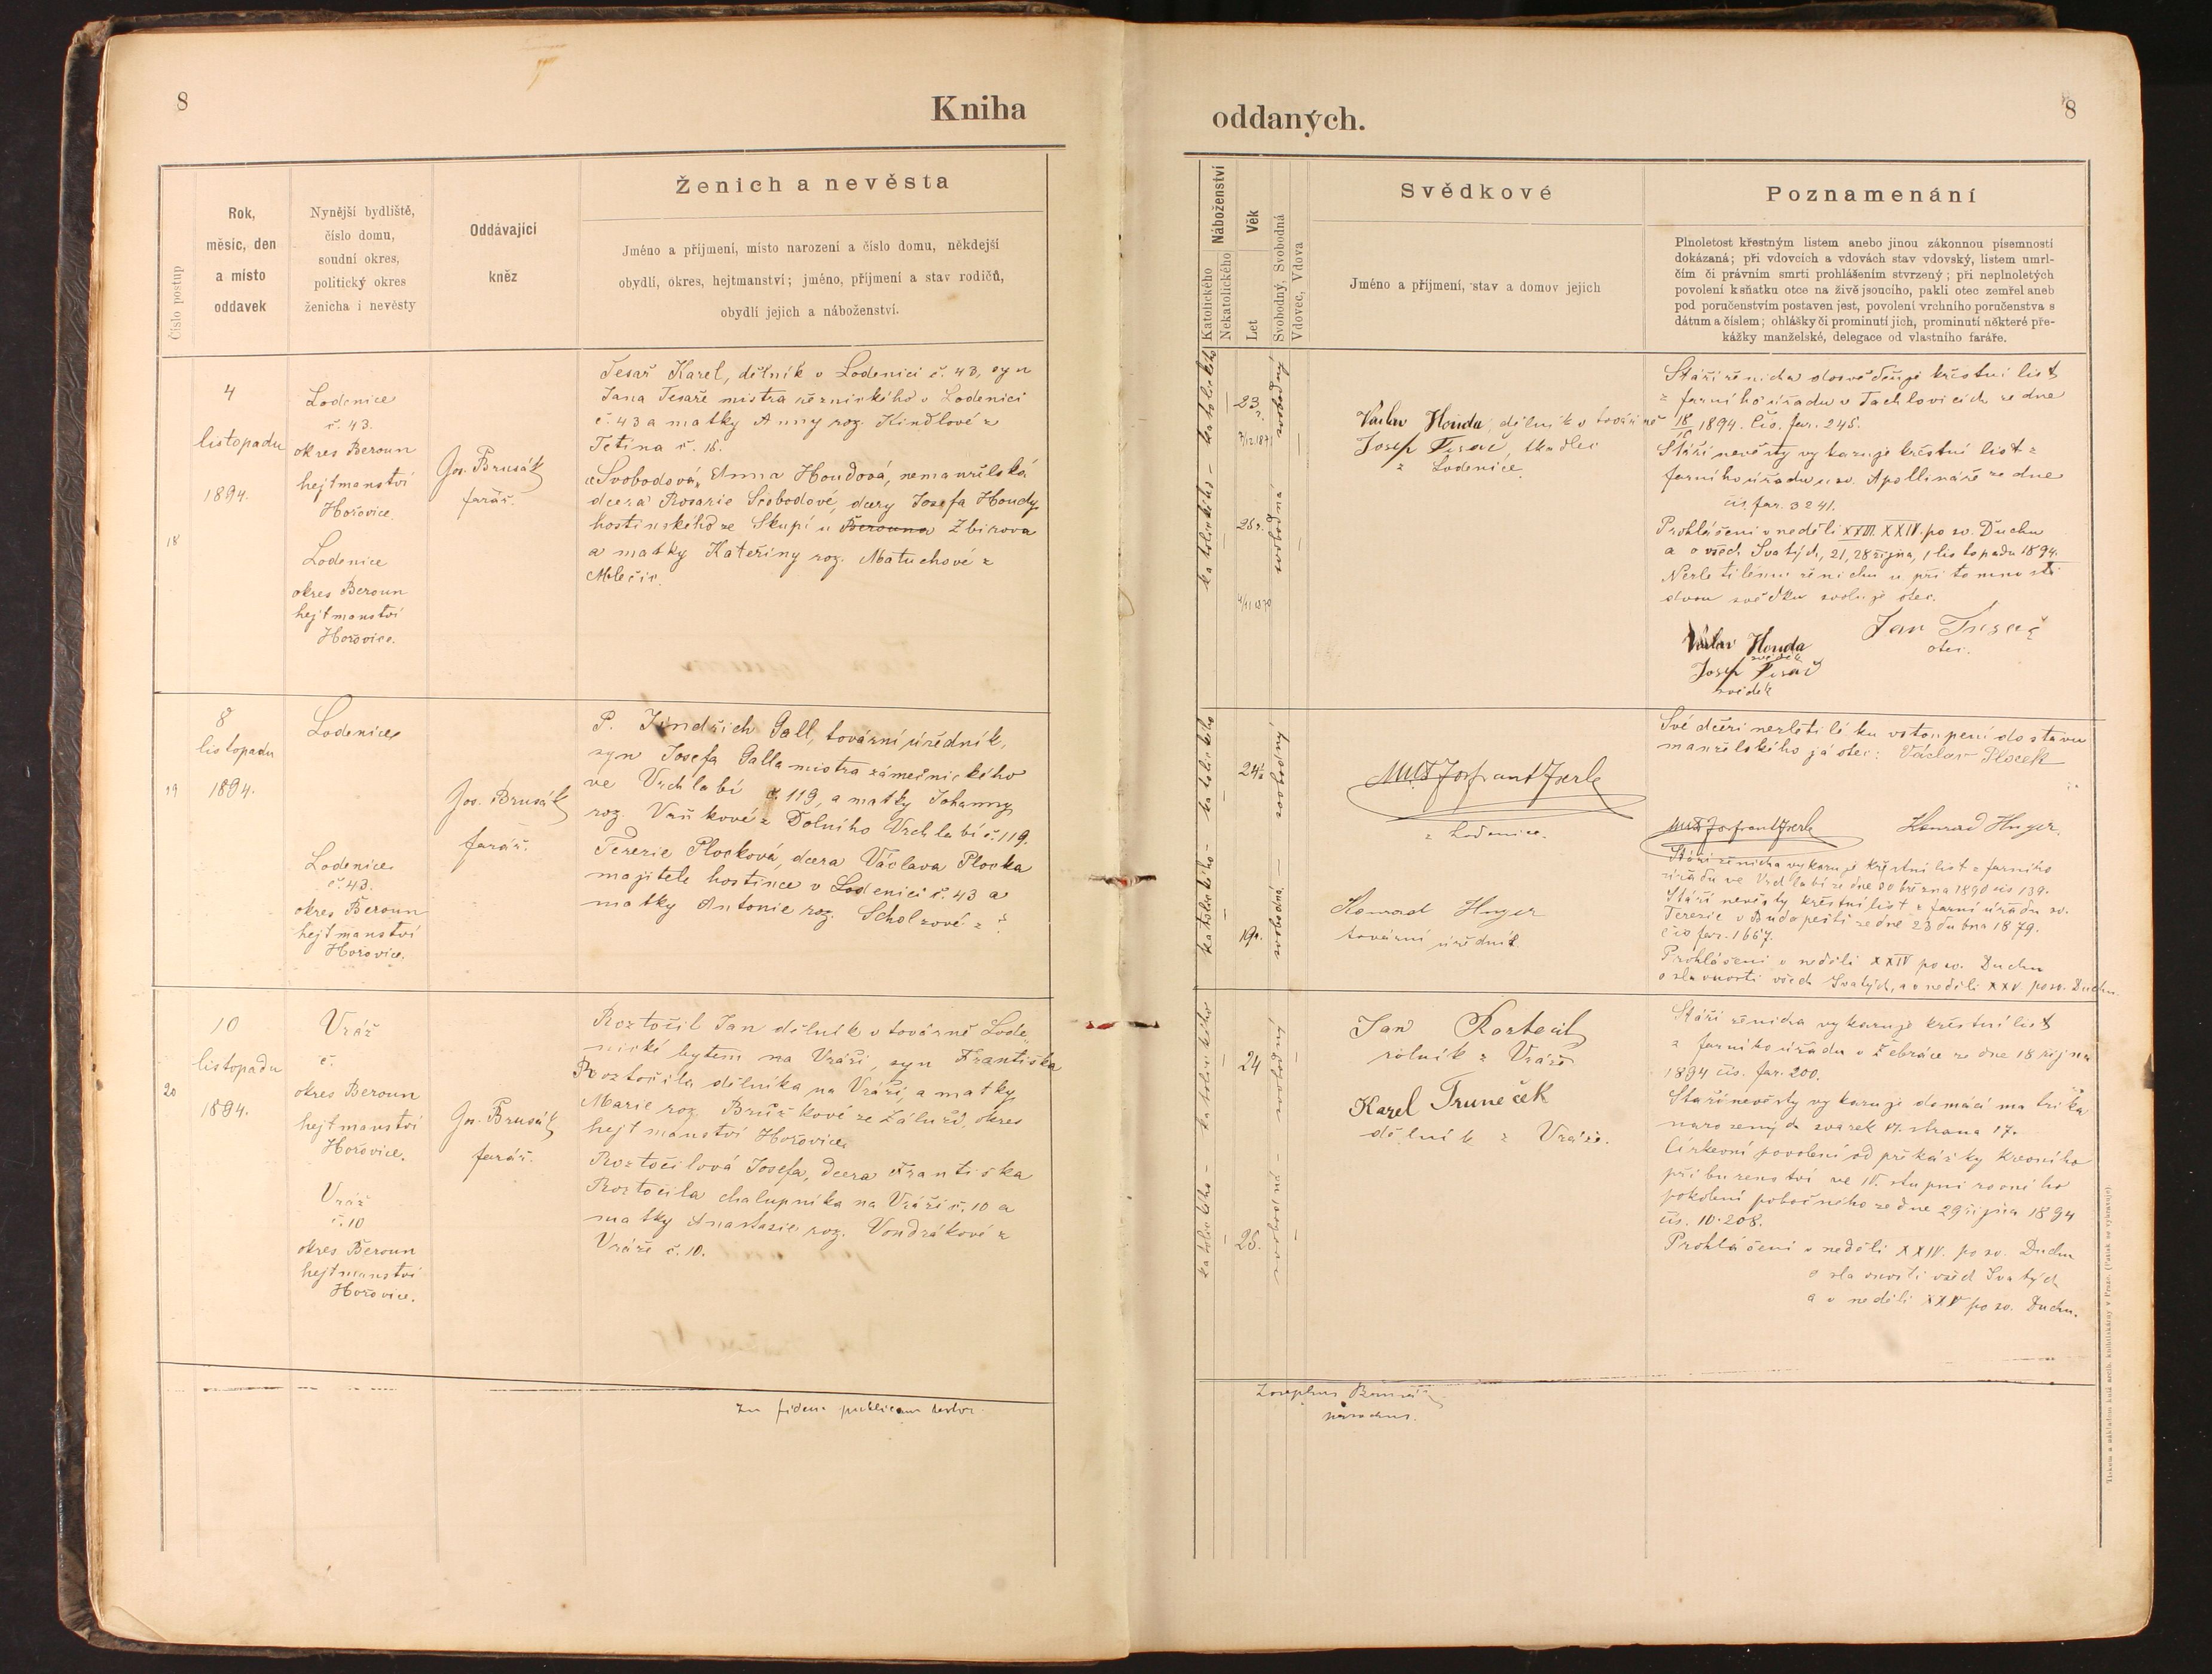 8
Kniha
oddaných.
8
Číslo postup
Rok,
měsíc, den
a místo
oddavek
Nynější bydliště,
číslo domu,
soudní okres,
politický okres
ženicha i nevěsty
Oddávající
kněz
Ženich a nevěsta
Jméno a příjmení, místo narození a číslo domu, někdejší
obydlí, okres, hejtmanství; jméno, příjmení a stav rodičů,
obydlí jejich a náboženství.
Náboženství
Katolického
Nekatolického
Věk
Let
Svobodný, Svobodná
Vdovec, Vdova
Svědkové
Jméno a příjmení, stav a domov jejich
Poznamenání
Plnoletost křestným listem anebo jinou zákonnou písemností
dokázaná; při vdovcích a vdovách stav vdovský, listem umrl-
čím či právním smrti prohlášením stvrzený; při neplnoletých
povolení k sňatku otce na živě jsoucího, pakli otec zemřel aneb
pod poručenstvím postaven jest, povolení vrchního poručenstva s
dátum a číslem; ohlášky či prominutí jich, prominutí některé pře-
kážky manželské, delegace od vlastního faráře.
18
4
listopadu
1894.
Lodenice
č. 43.
okres Beroun
hejtmanství
Hořovice.
Lodenice
okres Beroun
hejtmanství
Hořovice.
Jos. Brusák
farář.
Tesař Karel, dělník v Lodenici č. 43, syn
Jana Tesaře mistra řeznického v Lodenici
č. 43 a matky Anny roz. Kindlové z
Tetína č. 16.
Svobodová, Anna Houdová, nemanželská
dcera Rosarie Svobodové, dcery Josefa Houdy
hostinského ze Skupí u Berouna Zbirova
a matky Kateřiny roz. Matuchové z
Mlečic.
katolického - katolického
23
7/12.1871
25
4/11 1870
svobodný
svobodná
Václav Houda, dělník v továrně
Josef Tesař, tkadlec
z Lodenice.
Stáří ženicha dosvědčuje křestní list
z farního úřadu v Tachlovicích ze dne
18/10 1894. čís. far. 245.
Stáří nevěsty vykazuje křestní list z
farního úřadu u sv. Apollináře ze dne
čís. far. 3241.
Prohlášení v neděli XXIII. XXIV. po sv. Duchu
a o všech Svatých, 21, 28 října, 1 listopadu 1894.
Nezletilému ženichu u přítomnosti
dvou svědků svoluje otec.
Jan Tesař
otec.
Václav Houda
svědek
Josef Tesař
svědek
19
8
listopadu
1894.
Lodenice
Lodenice
č. 43.
okres Beroun
hejtmanství
Hořovice.
Jos. Brusák
farář.
P. Jindřich Gall, tovární úředník,
syn Josefa Galla mistra zámečnického
ve Vrchlabí č. 119, a matky Johanny
roz. Vaňkové z Dolního Vrchlabí č. 119.
Terezie Plocková, dcera Václava Plocka
majitele hostince v Lodenici č. 43 a
matky Antonie roz. Scholzové z
katolického - katolického
24
19
svobodný
svobodná
z Lodenice.
Konrad Huyer
tovární úředník
Své dceři nezletilé ku vstoupení do stavu
manželského já otec: Václav Plocek
Konrad Huyer.
Stáří ženicha vykazuje křestní list z farního
úřadu ve Vrchlabí ze dne 30 března 1890 čís 139.
Stáří nevěsty křestní list z farní úřadu sv.
Terezie v Budapešti ze dne 28 dubna 1879.
čís far. 1667.
Prohlášení v neděli XXIV po sv. Duchu
o slavnosti všech Svatých, a v neděli XXV po sv. Duchu.
20
10
listopadu
1894.
Vráž
č.
okres Beroun
hejtmanství
Hořovice.
Vráž
č. 10
okres Beroun
hejtmanství
Hořovice.
Jos. Brusák
farář.
Roztočil Jan dělník v továrně Lode-
nické bytem na Vráži, syn Františka
Roztočila dělníka na Vráži, a matky
Marie roz. Brůžkové ze Záluží, okres
hejtmanství Hořovice.
Roztočilová Josefa, dcera Františka
Roztočila chalupníka na Vráži č. 10 a
matky Anastasie roz. Vondrákové z
Vráže č. 10.
katolického - katolického
24
25.
svobodný
svobodná
Jan Roztočil
rolník z Vráže
Karel Truneček
dělník z Vráže.
Stáří ženicha vykazuje křestní list
z farního úřadu v Žebráce ze dne 18 října
1894 čís. far. 200.
Stáří nevěsty vykazuje domácí matrika
narozených svazek IV. strana 17.
Církevní povolení od překážky krevního
příbuzenství ve IV. stupni rovného
pokolení pobočného ze dne 29 října 1894
čís. 10.208.
Prohlášení v neděli XXIV. po sv. Duchu
o slavnosti všech Svatých
a v neděli XXV po sv. Duchu.
In fidem publicam testor
Josephus Brusák
parochus.